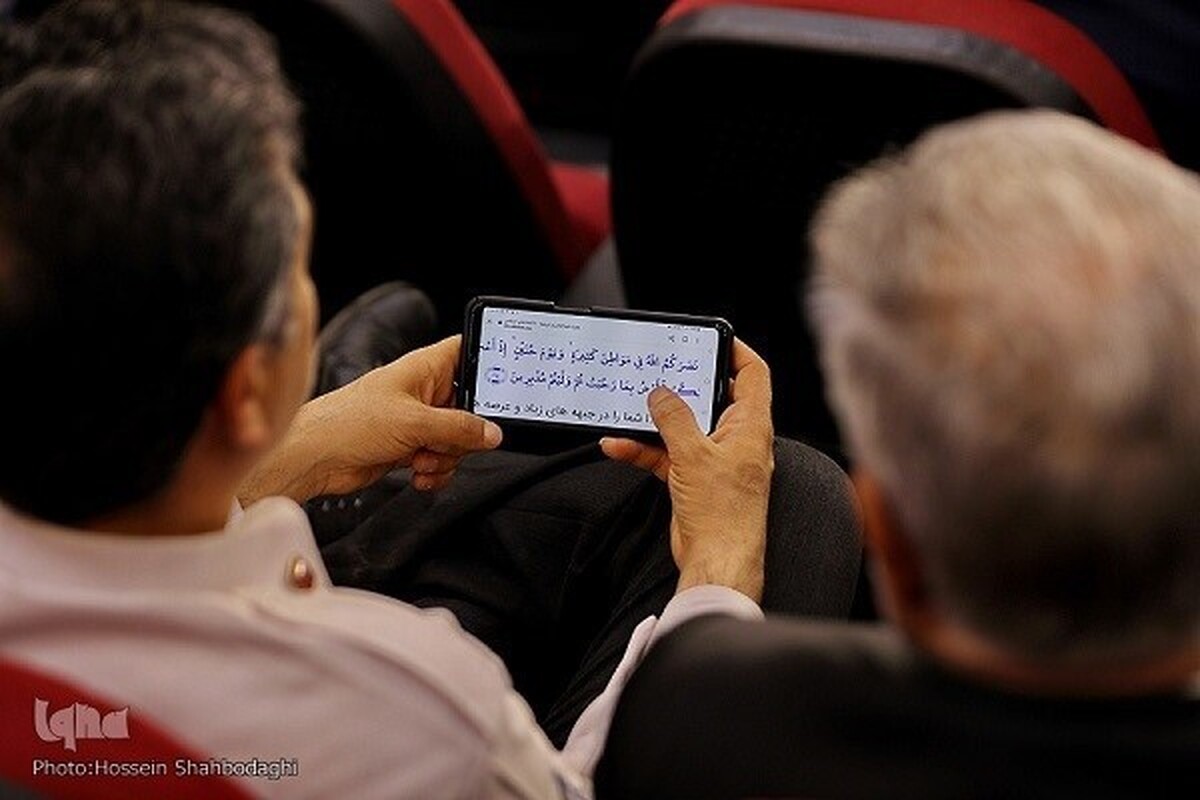 نَصَرَكُمُ اللهُ فِي مَوَاطِنَ كَثِيرَةٍ وَيَوْمَ حُنَيْنٍ إِذْ
بِمَا رَحُبَتْ ثُمَّ وَلَّيْتُمْ مُدْبِرِينَ
شما را در جبهه های زیاد و عرصه
Iqna
Photo:Hossein Shahbodaghi